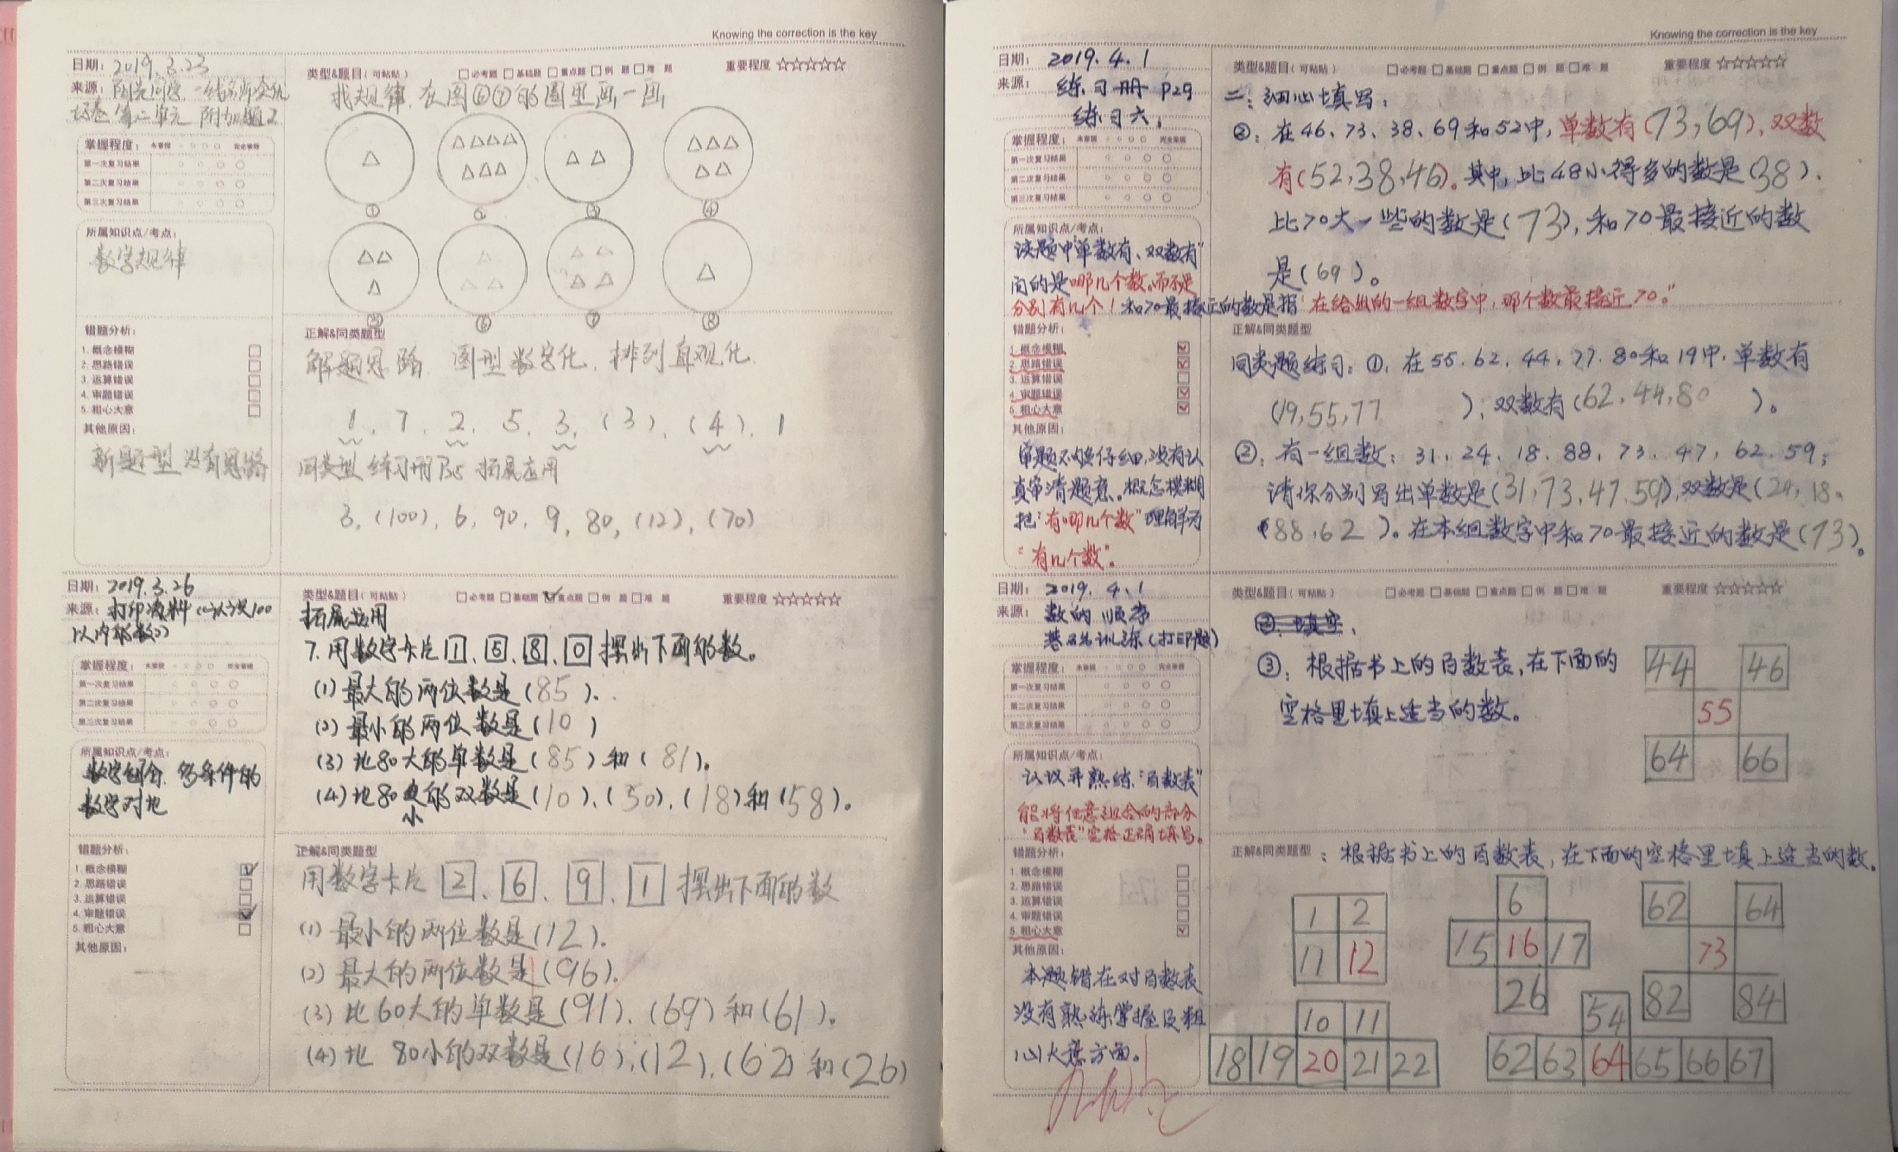 Knowing the correction is the key
日期：2019.3.23
类型&题目（可粘贴） □必考题 □基础题 □重点题 □例 题 □难 题 重要程度 ☆☆☆☆☆
来源：
试卷 第二单元 附加题2
找规律，在图⑥⑦的圆里画一画
掌握程度： 未掌握 完全掌握
第一次复习结果
第二次复习结果
第三次复习结果
① ② ③ ④
⑤ ⑥ ⑦ ⑧
所属知识点/考点：
数字规律
错题分析：
1. 概念模糊
2. 思路错误
3. 运算错误
4. 审题错误
5. 粗心大意
其他原因：
新题型 没有思路
正解&同类题型
解题思路 图型数字化，排列直观化.
1，7，2，5，3，(3)，(4)，1
同类型 练习册P35 拓展应用
3，(100)，6，90，9，80，(12)，(70)
日期：2019.3.26
类型&题目（可粘贴） □必考题 □基础题 □重点题 □例 题 □难 题 重要程度 ☆☆☆☆☆
来源：打印资料（《认识100
以内的数》）
拓展应用
7. 用数字卡片 1、5、8、0 摆出下面的数。
(1) 最大的两位数是(85).
(2) 最小的两位数是(10)
(3) 比80大的单数是(85)和(81).
(4) 比80小的双数是(10)、(50)、(18)和(58)。
掌握程度： 未掌握 完全掌握
第一次复习结果
第二次复习结果
第三次复习结果
所属知识点/考点：
数字组合，多条件的
数字对比
错题分析：
1. 概念模糊
2. 思路错误
3. 运算错误
4. 审题错误
5. 粗心大意
其他原因：
正解&同类题型
用数字卡片 2、6、9、1 摆出下面的数
(1) 最小的两位数是(12).
(2) 最大的两位数是(96).
(3) 比60大的单数是(91)、(69)和(61).
(4) 比 80小的双数是(16),(12),(62)和(26)
Knowing the correction is the key
日期：2019.4.1
类型&题目（可粘贴） □必考题 □基础题 □重点题 □例 题 □难 题 重要程度 ☆☆☆☆☆
来源：练习册 P29
练习六；
二：细心填写：
②：在46、73、38、69和52中，单数有(73,69)，双数
有(52,38,46)。其中，比48小得多的数是(38)，
比70大一些的数是(73)，和70最接近的数
是(69)。
掌握程度： 未掌握 完全掌握
第一次复习结果
第二次复习结果
第三次复习结果
所属知识点/考点：
该题中"单数有、双数有"
问的是哪几个数，而不是
分别有几个！和70最接近的数是指"在给出的一组数字中，哪个数最接近70。"
错题分析：
1. 概念模糊
2. 思路错误
3. 运算错误
4. 审题错误
5. 粗心大意
其他原因：
审题不够仔细，没有认
真审清题意。概念模糊
把"有哪几个数"理解为
"有几个数"。
正解&同类题型
同类题练习：①，在55、62、44、77、80和19中，单数有
(19,55,77)，双数有(62,44,80)。
②：有一组数：31、24、18、88、73、47、62、59；
请你分别写出单数是(31,73,47,59)，双数是(24,18,
88,62)。在本组数字中和70最接近的数是(73)。
日期：2019.4.1
类型&题目（可粘贴） □必考题 □基础题 □重点题 □例 题 □难 题 重要程度 ☆☆☆☆☆
来源：数的顺序
基础训练（打印题）
③：根据书上的百数表，在下面的
空格里填上适当的数。
44 46
55
64 66
掌握程度： 未掌握 完全掌握
第一次复习结果
第二次复习结果
第三次复习结果
所属知识点/考点：
认识并熟练"百数表"
能将任意组合的部分
"百数表"空格正确填写。
错题分析：
1. 概念模糊
2. 思路错误
3. 运算错误
4. 审题错误
5. 粗心大意
其他原因：
本题错在对百数表
没有熟练掌握及粗
心大意方面。
正解&同类题型：根据书上的百数表，在下面的空格里填上适当的数.
1 2
11 12
6
15 16 17
26
62 64
73
82 84
10 11
18 19 20 21 22
54
62 63 64 65 66 67